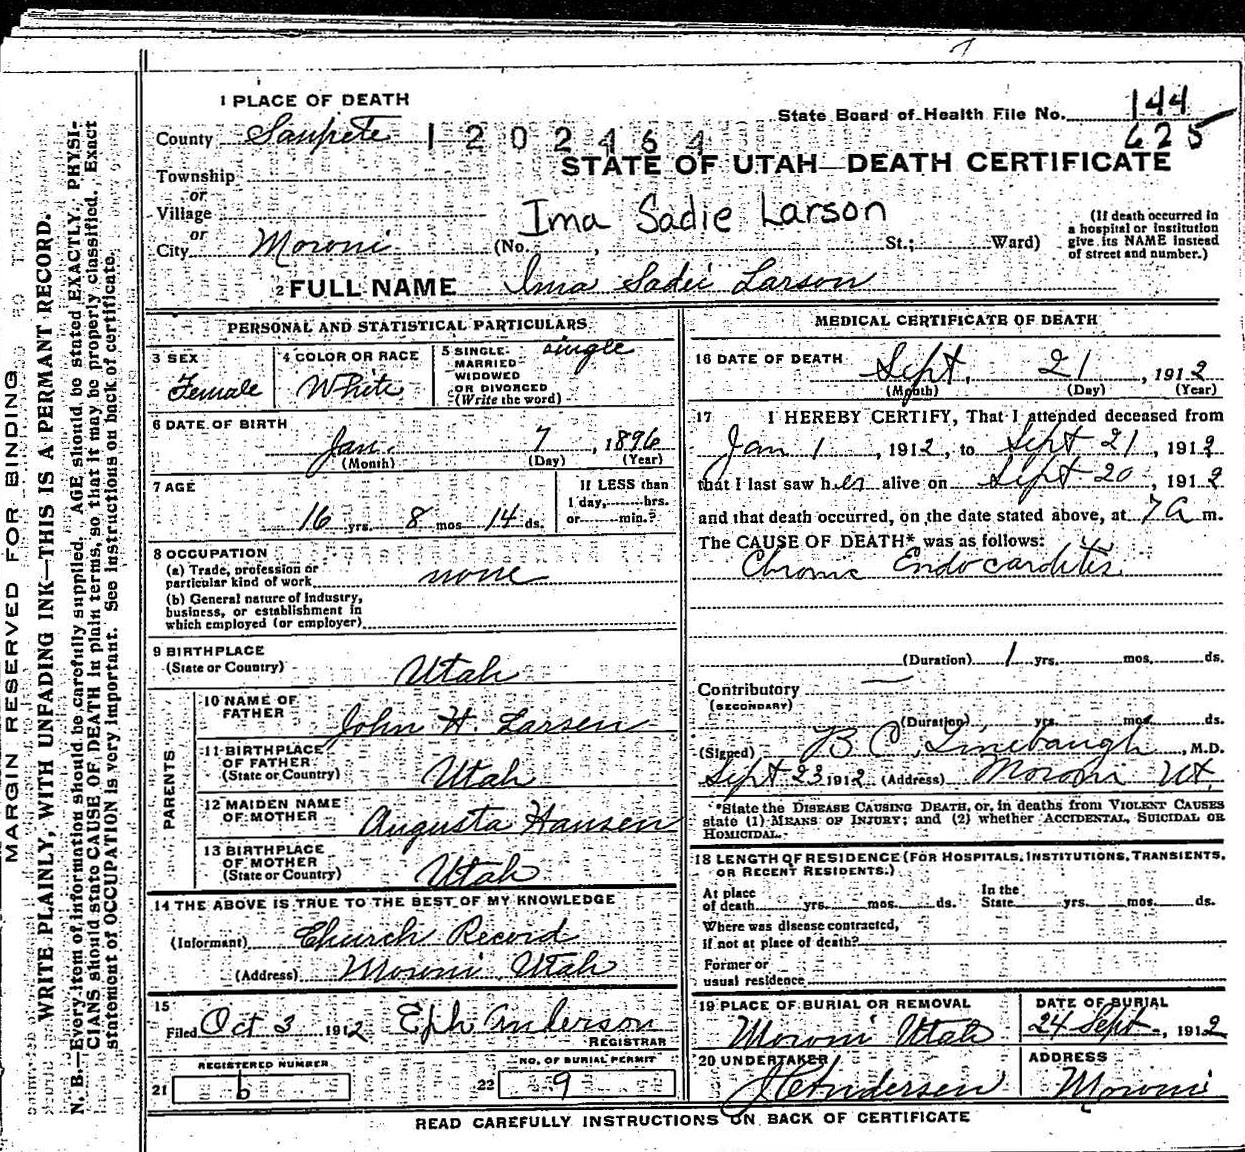 1 PLACE OF DEATH
State Board of Health File No. 144
625
County Sanpete 1202464
STATE OF UTAH—DEATH CERTIFICATE
Township
or
Village
or
City Moroni
Ima Sadie Larson
(No. , St.; Ward)
(If death occurred in
a hospital or institution
give its NAME instead
of street and number.)
2 FULL NAME Ima Sadie Larson
PERSONAL AND STATISTICAL PARTICULARS
3 SEX
Female
4 COLOR OR RACE
White
5 SINGLE
MARRIED
WIDOWED
OR DIVORCED
(Write the word)
single
6 DATE OF BIRTH
Jan. 7, 1896
(Month) (Day) (Year)
7 AGE
16 yrs. 8 mos 14 ds.
If LESS than
1 day, hrs.
or min.?
8 OCCUPATION
(a) Trade, profession or
particular kind of work none
(b) General nature of industry,
business, or establishment in
which employed (or employer)
9 BIRTHPLACE
(State or Country) Utah
PARENTS
10 NAME OF
FATHER John H. Larsen
11 BIRTHPLACE
OF FATHER
(State or Country) Utah
12 MAIDEN NAME
OF MOTHER Augusta Hansen
13 BIRTHPLACE
OF MOTHER
(State or Country) Utah
14 THE ABOVE IS TRUE TO THE BEST OF MY KNOWLEDGE
(Informant) Church Record
(Address) Moroni Utah
15
Filed Oct 3 1912 Eph Anderson
REGISTRAR
REGISTERED NUMBER
21 6
NO. OF BURIAL PERMIT
22 9
MEDICAL CERTIFICATE OF DEATH
16 DATE OF DEATH
Sept. 21, 1912
(Month) (Day) (Year)
17 I HEREBY CERTIFY, That I attended deceased from
Jan 1, 1912, to Sept 21, 1912
that I last saw her alive on Sept 20, 1912
and that death occurred, on the date stated above, at 7 a m.
The CAUSE OF DEATH* was as follows:
Chronic Endocarditis
(Duration) 1 yrs. mos. ds.
Contributory
(SECONDARY)
(Duration) yrs. mos. ds.
(Signed) B C Linebaugh, M.D.
Sept 23 1912 (Address) Moroni Ut.
*State the DISEASE CAUSING DEATH, or, in deaths from VIOLENT CAUSES
state (1) MEANS OF INJURY; and (2) whether ACCIDENTAL, SUICIDAL OR
HOMICIDAL.
18 LENGTH OF RESIDENCE (FOR HOSPITALS, INSTITUTIONS, TRANSIENTS,
OR RECENT RESIDENTS.)
At place
of death yrs. mos. ds.
In the
State yrs. mos. ds.
Where was disease contracted,
if not at place of death?
Former or
usual residence
19 PLACE OF BURIAL OR REMOVAL
Moroni Utah
DATE OF BURIAL
24 Sept., 1912
20 UNDERTAKER
J C Andersen
ADDRESS
Moroni
READ CAREFULLY INSTRUCTIONS ON BACK OF CERTIFICATE
MARGIN RESERVED FOR BINDING
WRITE PLAINLY, WITH UNFADING INK—THIS IS A PERMANT RECORD.
N. B.—Every item of information should be carefully supplied. AGE should be stated EXACTLY. PHYSI-
CIANS should state CAUSE OF DEATH in plain terms, so that it may be properly classified. Exact
statement of OCCUPATION is very important. See instructions on back of certificate.